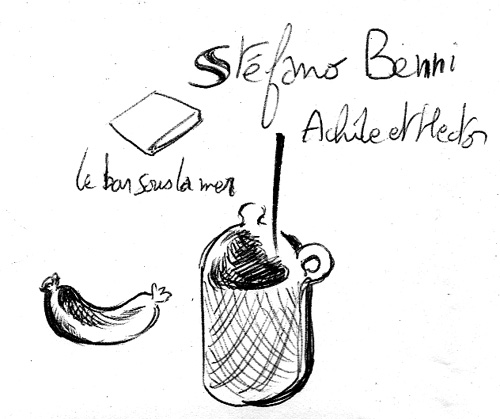 Stéfano Benni
Achile et Hector
le bar sous la mer